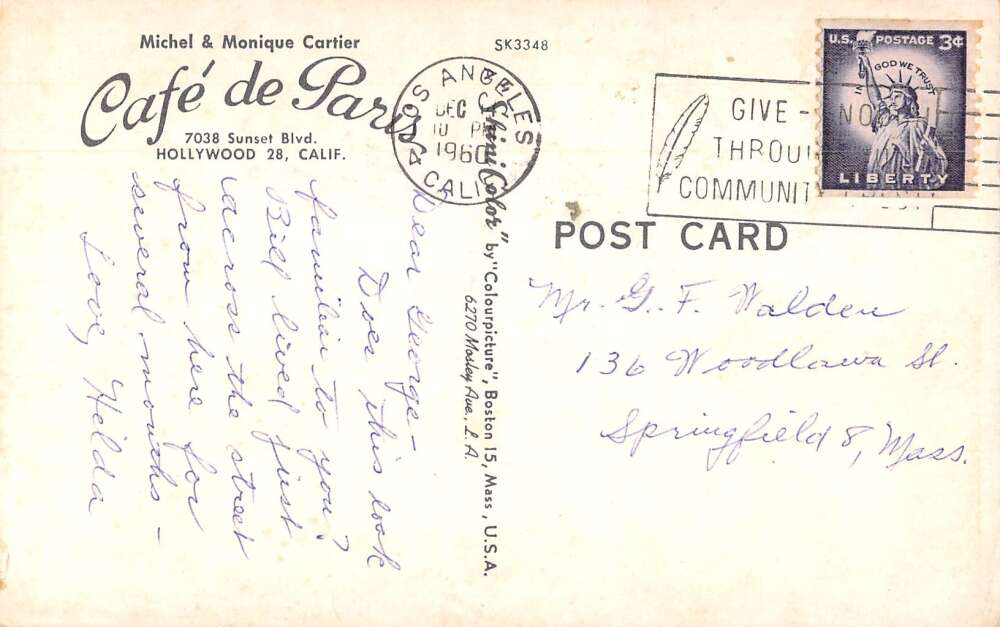 Michel & Monique Cartier
Café de Paris
7038 Sunset Blvd.
HOLLYWOOD 28, CALIF.
SK3348
LOS ANGELES
DEC
10 P
1960
CALIF
GIVE - NO
THROU
COMMUNIT
U.S. POSTAGE 3¢
IN GOD WE TRUST
LIBERTY
POST CARD
Dear George -
Does this look
familiar to you?
Bill lived just
across the street
from here for
several months -
Love, Helda
"ShiniColor" by "Colourpicture", Boston 15, Mass., U.S.A.
6270 Mosley Ave., L.A.
Mr. G. F. Walden
136 Woodlawn St.
Springfield 8, Mass.